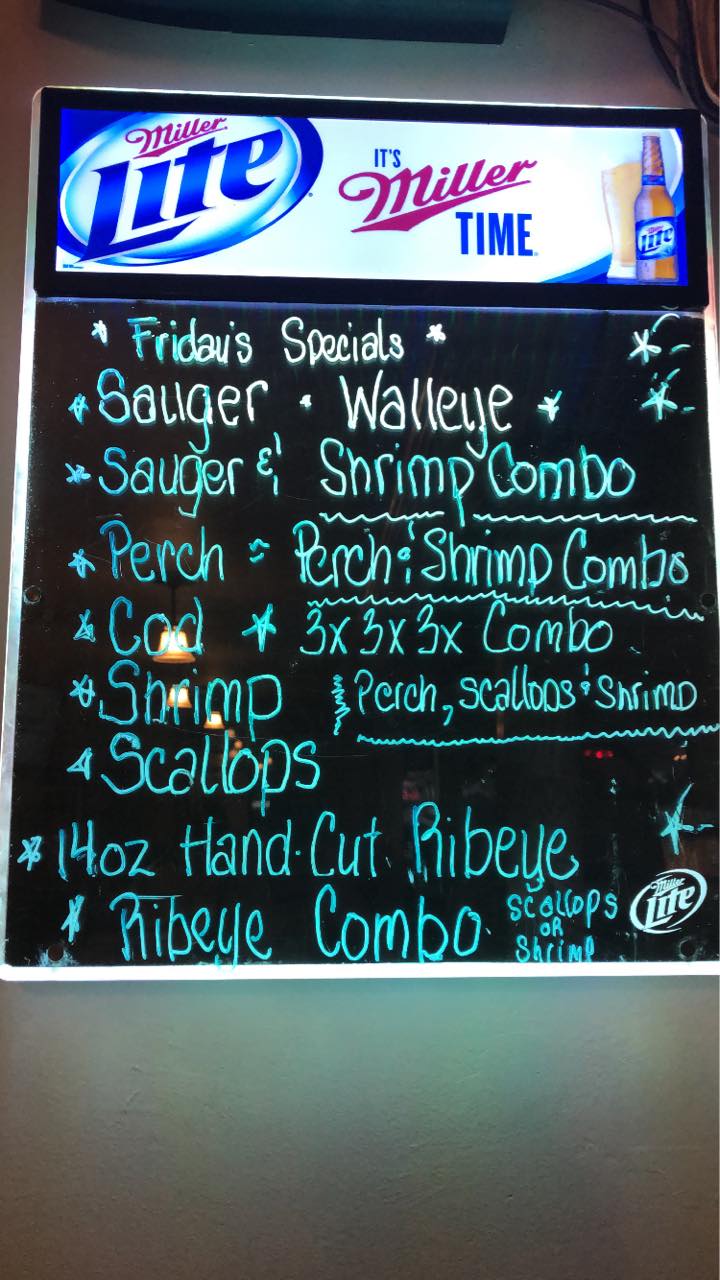 Miller Lite IT'S Miller TIME
Lite
* Friday's Specials *
* Sauger · Walleye *
* Sauger & Shrimp Combo
* Perch ~ Perch & Shrimp Combo
* Cod * 3x3x3x Combo
* Shrimp Perch, Scallops & Shrimp
* Scallops
* 14oz Hand-Cut Ribeye
* Ribeye Combo scallops OR Shrimp
Miller Lite